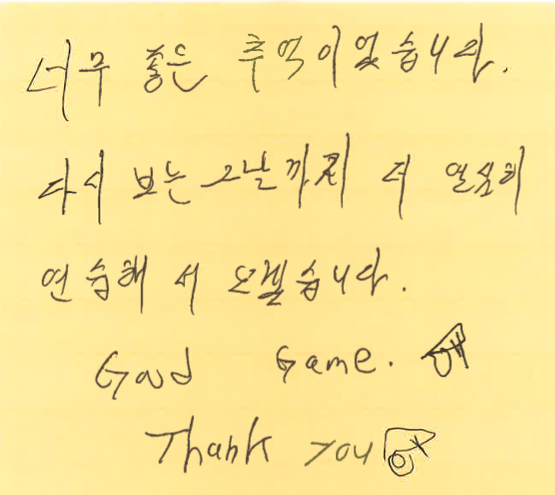 너무 좋은 추억이었습니다.
다시 보는 그날까지 더 열심히
연습해서 오겠습니다.
Good Game.
Thank you